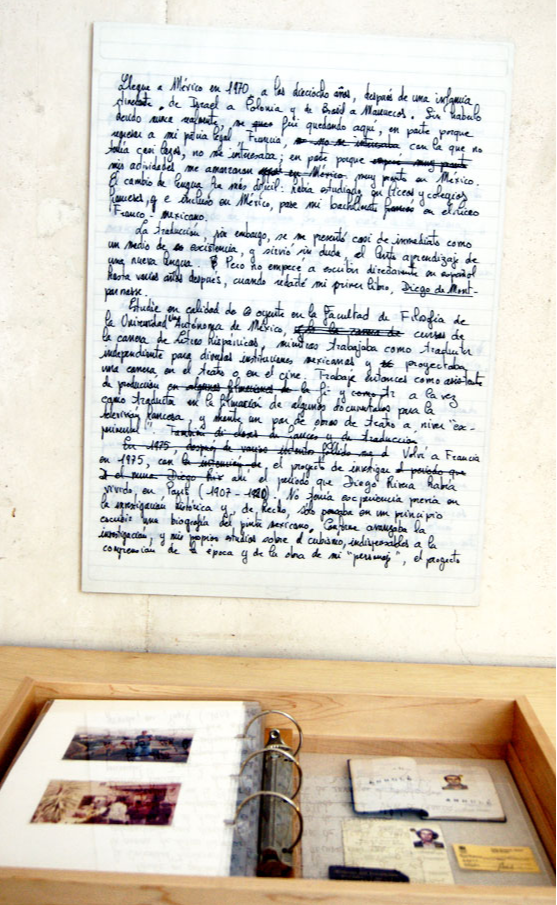 Llegue a México en 1970, a los dieciocho años, después de una infancia
errante, de Israel a Polonia y de Brasil a Marruecos. Sin haberlo
deseado nunca realmente, me fui quedando aquí, en parte porque
regresar a mi patria legal, Francia, no me interesaba con la que no
tenía lazos, no me interesaba; en parte porque
mis actividades me amarraron en México muy pronto en México.
El cambio de lengua fue más difícil: había estudiado en liceos y colegios
franceses, e incluso en México, pasé mi bachillerato francés en el Liceo
Franco-mexicano.
La traducción, sin embargo, se me presentó casi de inmediato como
un medio de existencia, y sirvió sin duda, el lento aprendizaje de
una nueva lengua. Pero no empecé a escribir directamente en español
hasta varios años después, cuando redacté mi primer libro, Diego de Mont-
parnasse.
Estudié en calidad de oyente en la Facultad de Filosofía de
la Universidad Autónoma de México, cursos de
la carrera de Letras Hispánicas, mientras trabajaba como traductora
independiente para diversas instituciones mexicanas y proyectaba
una carrera, en el teatro o en el cine. Trabajé entonces como asistente
de producción en y a la vez
como traductora en la filmación de algunos documentales para la
televisión francesa, y monté un par de obras de teatro a nivel "ex-
perimental". También di clases de francés y de traducción
En 1975, después de varios intentos fallidos Volví a Francia
en 1975, con la intención de, el proyecto de investigar el período que
ahí el período que Diego Rivera había
vivido en París (1907-1920). No tenía experiencia previa en
la investigación histórica y, de hecho, sólo pensaba en un principio
escribir una biografía del pintor mexicano. Conforme avanzaba la
investigación, y mis propios estudios sobre el cubismo, indispensables a la
comprensión de la época y de la obra de mi "personaje", el proyecto